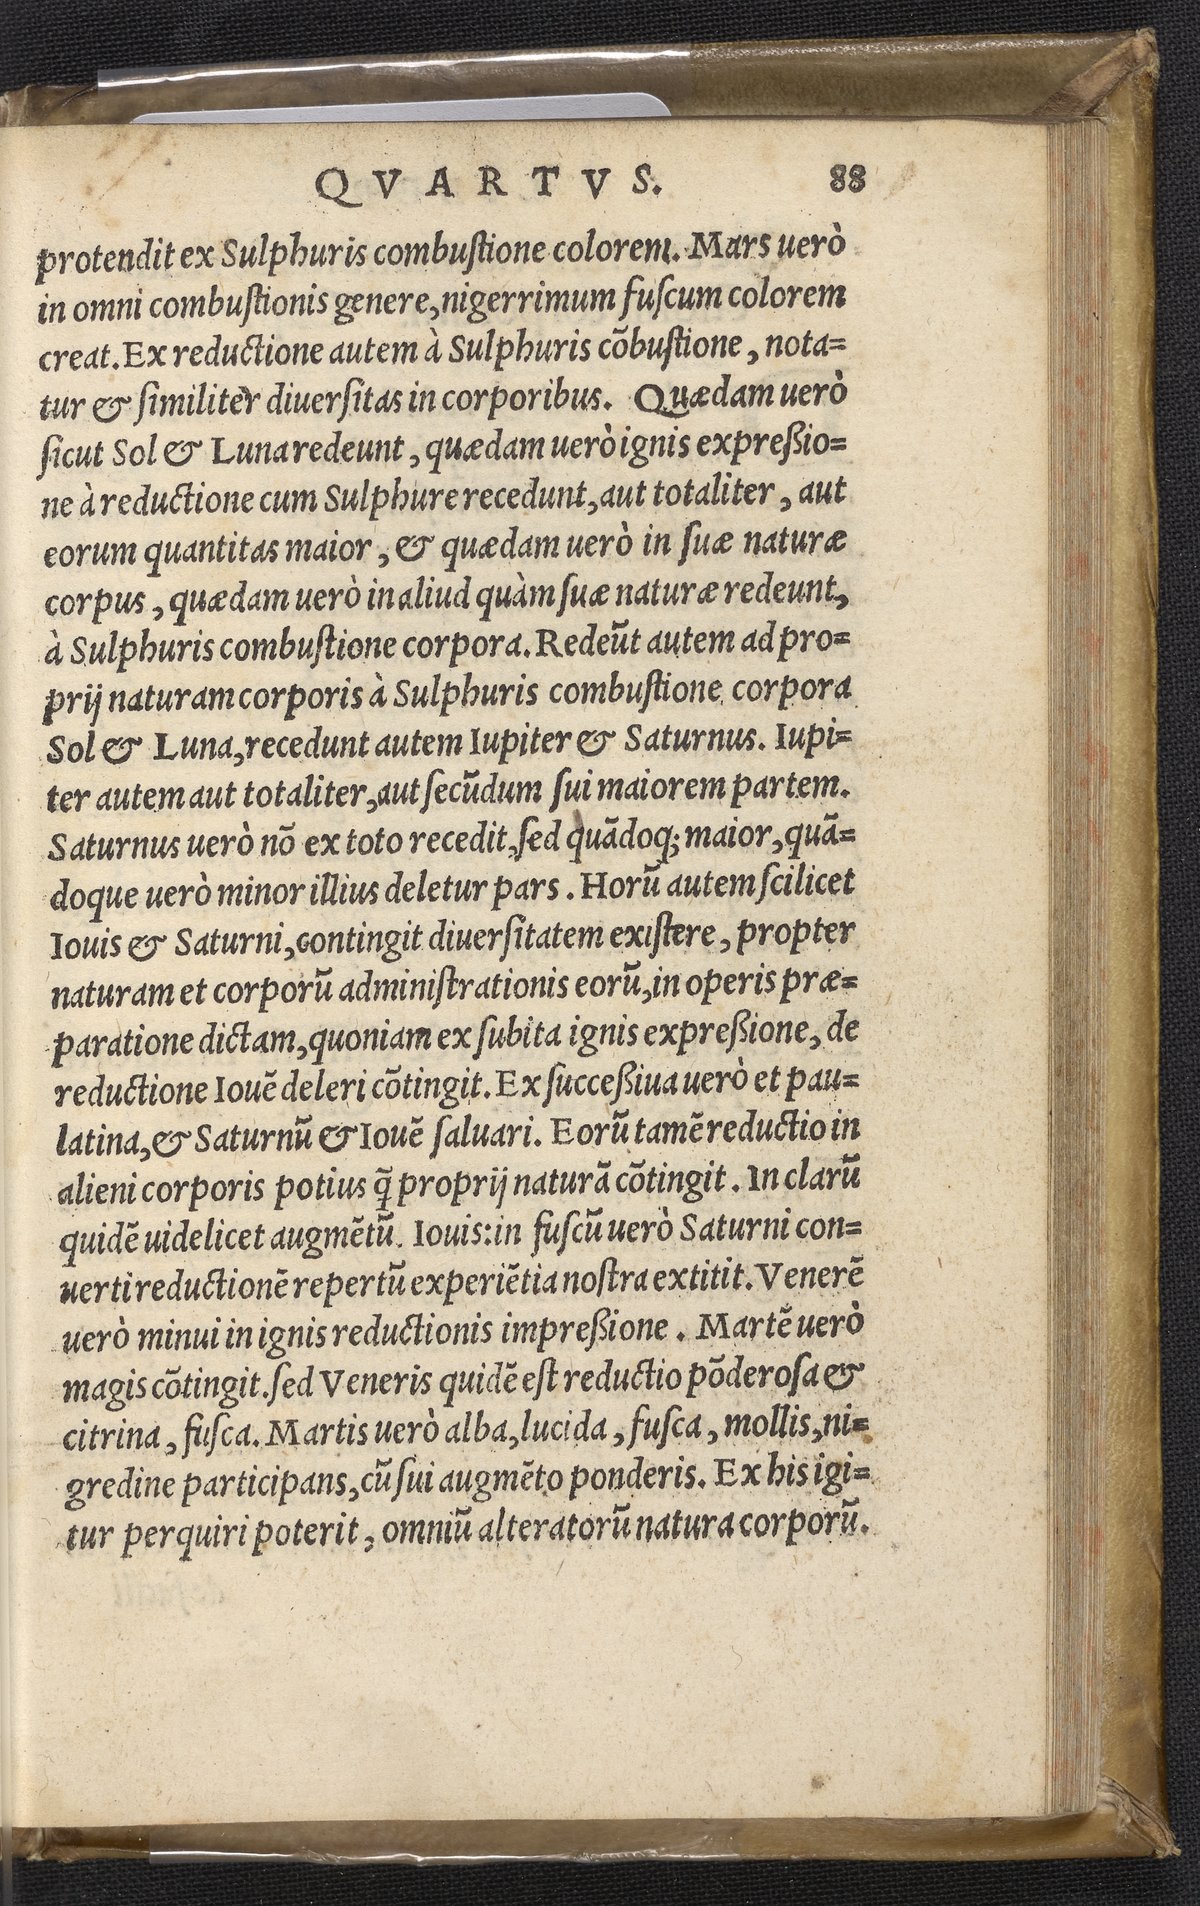 QVARTVS. 88
protendit ex Sulphuris combuſtione colorem. Mars uerò
in omni combuſtionis genere, nigerrimum fuſcum colorem
creat. Ex reductione autem à Sulphuris cõbuſtione, nota=
tur & ſimiliter diuerſitas in corporibus. Quædam uerò
ſicut Sol & Luna redeunt, quædam uerò ignis expreßio=
ne à reductione cum Sulphure recedunt, aut totaliter, aut
eorum quantitas maior, & quædam uerò in ſuæ naturæ
corpus, quædam uerò in aliud quàm ſuæ naturæ redeunt,
à Sulphuris combuſtione corpora. Redeũt autem ad pro=
prij naturam corporis à Sulphuris combuſtione corpora
Sol & Luna, recedunt autem Iupiter & Saturnus. Iupi=
ter autem aut totaliter, aut ſecũdum ſui maiorem partem.
Saturnus uerò nõ ex toto recedit, ſed quãdoq; maior, quã=
doque uerò minor illius deletur pars. Horũ autem ſcilicet
Iouis & Saturni, contingit diuerſitatem exiſtere, propter
naturam et corporũ adminiſtrationis eorũ, in operis præ=
paratione dictam, quoniam ex ſubita ignis expreßione, de
reductione Iouẽ deleri cõtingit. Ex ſucceßiua uerò et pau=
latina, & Saturnũ & Iouẽ ſaluari. Eorũ tamẽ reductio in
alieni corporis potius q̃ proprij naturã cõtingit. In clarũ
quidẽ uidelicet augmẽtũ. Iouis: in fuſcũ uerò Saturni con=
uerti reductionẽ repertũ experiẽtia noſtra extitit. Venerẽ
uerò minui in ignis reductionis impreßione. Martẽ uerò
magis cõtingit. ſed Veneris quidẽ eſt reductio põderoſa &
citrina, fuſca. Martis uerò alba, lucida, fuſca, mollis, ni=
gredine participans, cũ ſui augmẽto ponderis. Ex his igi=
tur perquiri poterit, omniũ alteratorũ natura corporũ.